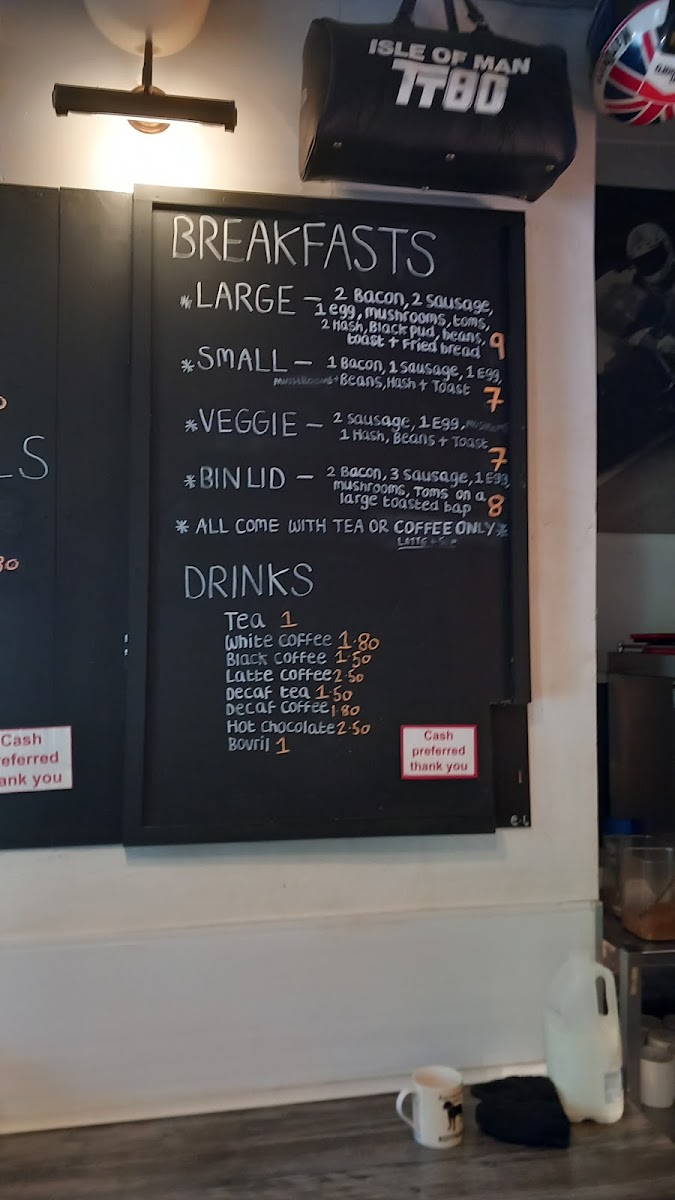 ISLE OF MAN
TT80
BREAKFASTS
*LARGE – 2 Bacon, 2 Sausage,
1 egg, mushrooms, toms,
2 Hash, Black pud, beans,
toast + Fried bread 9
*SMALL – 1 Bacon, 1 Sausage, 1 Egg,
mushrooms + Beans, Hash + Toast
7
*VEGGIE – 2 Sausage, 1 Egg,
1 Hash, Beans + Toast
7
*BIN LID – 2 Bacon, 3 Sausage, 1 Egg,
mushrooms, Toms on a
large toasted bap 8
* ALL COME WITH TEA OR COFFEE ONLY *
LATTE
DRINKS
Tea 1
White coffee 1.80
Black coffee 1.50
Latte coffee 2.50
Decaf tea 1.50
Decaf coffee 1.80
Hot chocolate 2.50
Bovril 1
Cash
preferred
thank you
LS
80
Cash
referred
ank you
e-L